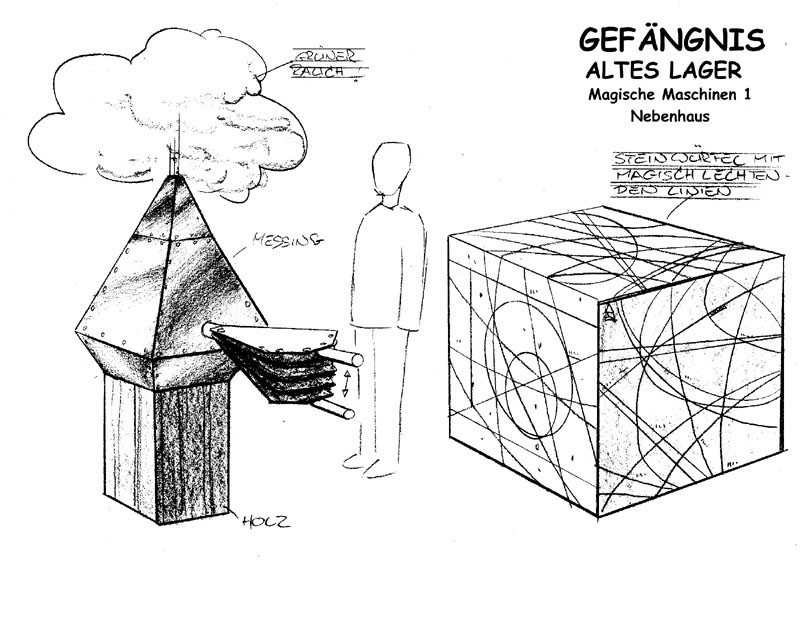 GEFÄNGNIS
ALTES LAGER
Magische Maschinen 1
Nebenhaus
GRÜNER
RAUCH!
MESSING
HOLZ
STEINWÜRFEL MIT
MAGISCH LECHTEN-
DEN LINIEN